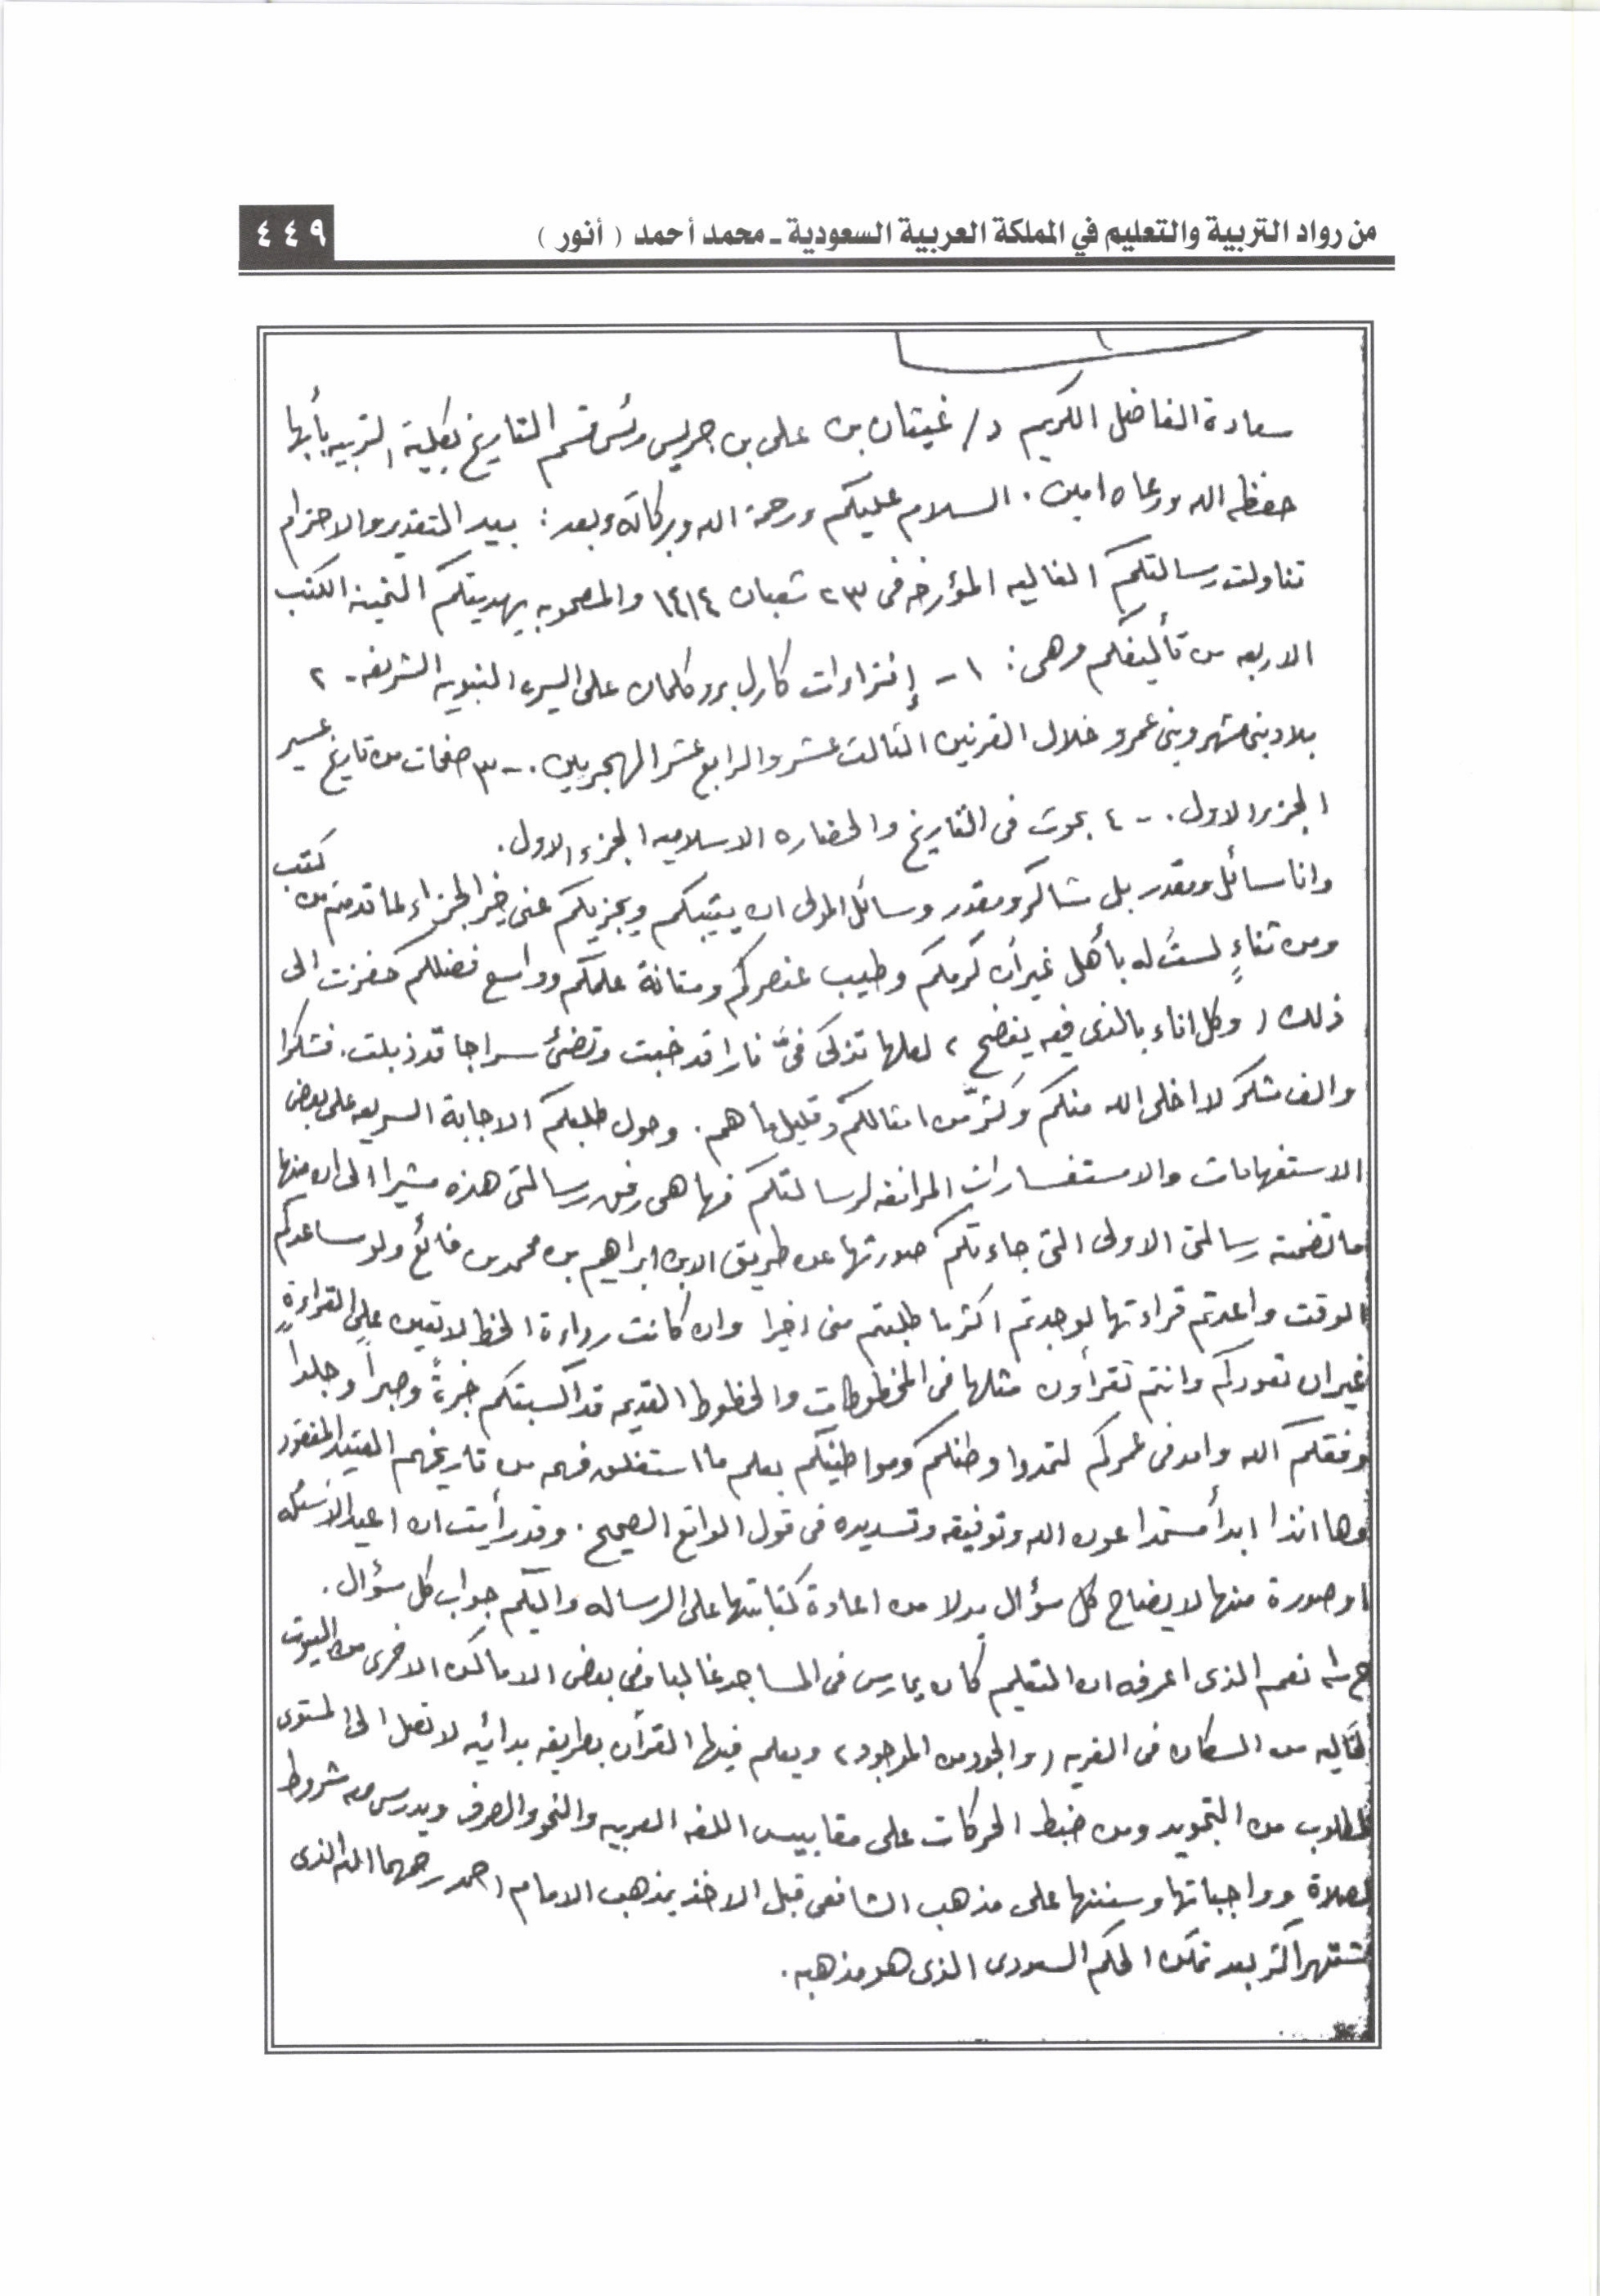 من رواد التربية والتعليم في المملكة العربية السعودية ـ محمد أحمد ( أنور )
٤٤٩
سعادة الفاضل الكريم د/ غيثان بن على بن جريس رئس قسم التاريخ بكلية التربيه بأبها
حفظه الله ورعاه امين . السلام عليكم ورحمة الله وبركاته وبعد : بيد التقدير والاحترام
تناولت رسالتكم الغاليه المؤرخه فى ٢٣ شعبان ١٤١٤ والمصحوبه بهديتكم الثمينه الكتب
الاربعه من تأليفكم وهى : ١ - إفتراءات كارل بروكلمان على السيره النبويه الشريفه - ٢
بلاد بنى شهر وبنى عمرو خلال القرنين الثالث عشر والرابع عشر الهجريين . - ٣ صفحات من تاريخ عسير
الجزء الاول . - ٤ بحوث فى التاريخ والحضاره الاسلاميه الجزء الاول .
وانا سائل ومقدر بل شاكر ومقدر وسائل المولى ان يثيبكم ويجزيكم عنى خير الجزاء لما قدمتم من كتب
ومن ثناءٍ لستُ له بأهل غير أن كرمكم وطيب عنصركم ومتانة علمكم وواسع فضلكم حفزت الى
ذلك ( وكل اناء بالذى فيه ينضح ) لعلها تذكى فىَّ نارا قد خبت وتضئ سراجا قد ذبلت . فشكرا
والف شكر لا اخلى الله منكم وكثَّر من امثالكم وقليل ما هم . وحول طلبكم الاجابة السريعه على بعض
الاستفهامات والاستفسارات المرافقه لرسالتكم فها هى رفق رسالتى هذه مشيرا الى ان منها
ما تضمنته رسالتى الاولى التى جاءتكم صورتها عن طريق الابن ابراهيم بن محمد بن فائع ولو ساعدكم
الوقت واعدتم قراءتها لوجدتم اكثر ما طلبتم منى اخيرا وان كانت رداءة الخط لا تعين على القراءةِ
غير ان تعودكم وانتم تقرأون مثلها فى المخطوطات والخطوط القديمه قد اكسبتكم خبرةً وصبراً وجلداً
وفقكم الله وامد فى عمركم لتمدوا وطنكم ومواطنيكم بعلم ما استغلق فهمه من تاريخهم العتيد المفقود
وها انذا ابدأ مستمدا عون الله وتوفيقه وتسديده فى قول الواقع الصحيح . وقد رأيت ان اعيد الاسئله
او صورة منها لايضاح كل سؤال بدلا من اعادة كتابتها على الرساله واليكم جواب كل سؤال .
نعم الذى اعرفه ان التعليم كان يمارس فى المساجد غالبا وفى بعض الاماكن الاخرى من البيوت
الخاليه من السكان فى القريه ( والجود من الموجود ) ويعلم فيها القرآن بطريقه بدائيه لا تصل الى المستوى
المطلوب من التجويد ومن ضبط الحركات على مقاييس اللغه العربيه والنحو والصرف ويدرس معه شروط
الصلاة وواجباتها وسننها على مذهب الشافعى قبل الاخذ بمذهب الامام احمد رحمهما الله الذى
اشتهر اكثر بعد تمكن الحكم السعودى الذى هو مذهبه .